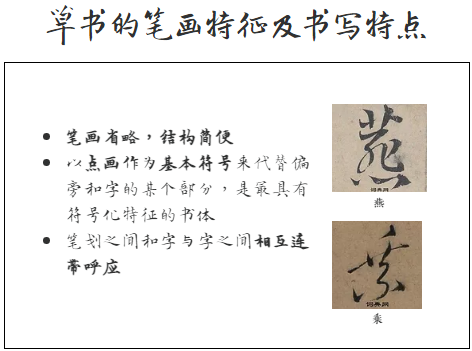 草书的笔画特征及书写特点
笔画省略，结构简便
以点画作为基本符号来代替偏
旁和字的某个部分，是最具有
符号化特征的书体
笔划之间和字与字之间相互连
带呼应
燕
词典网
燕
乘
词典网
乘